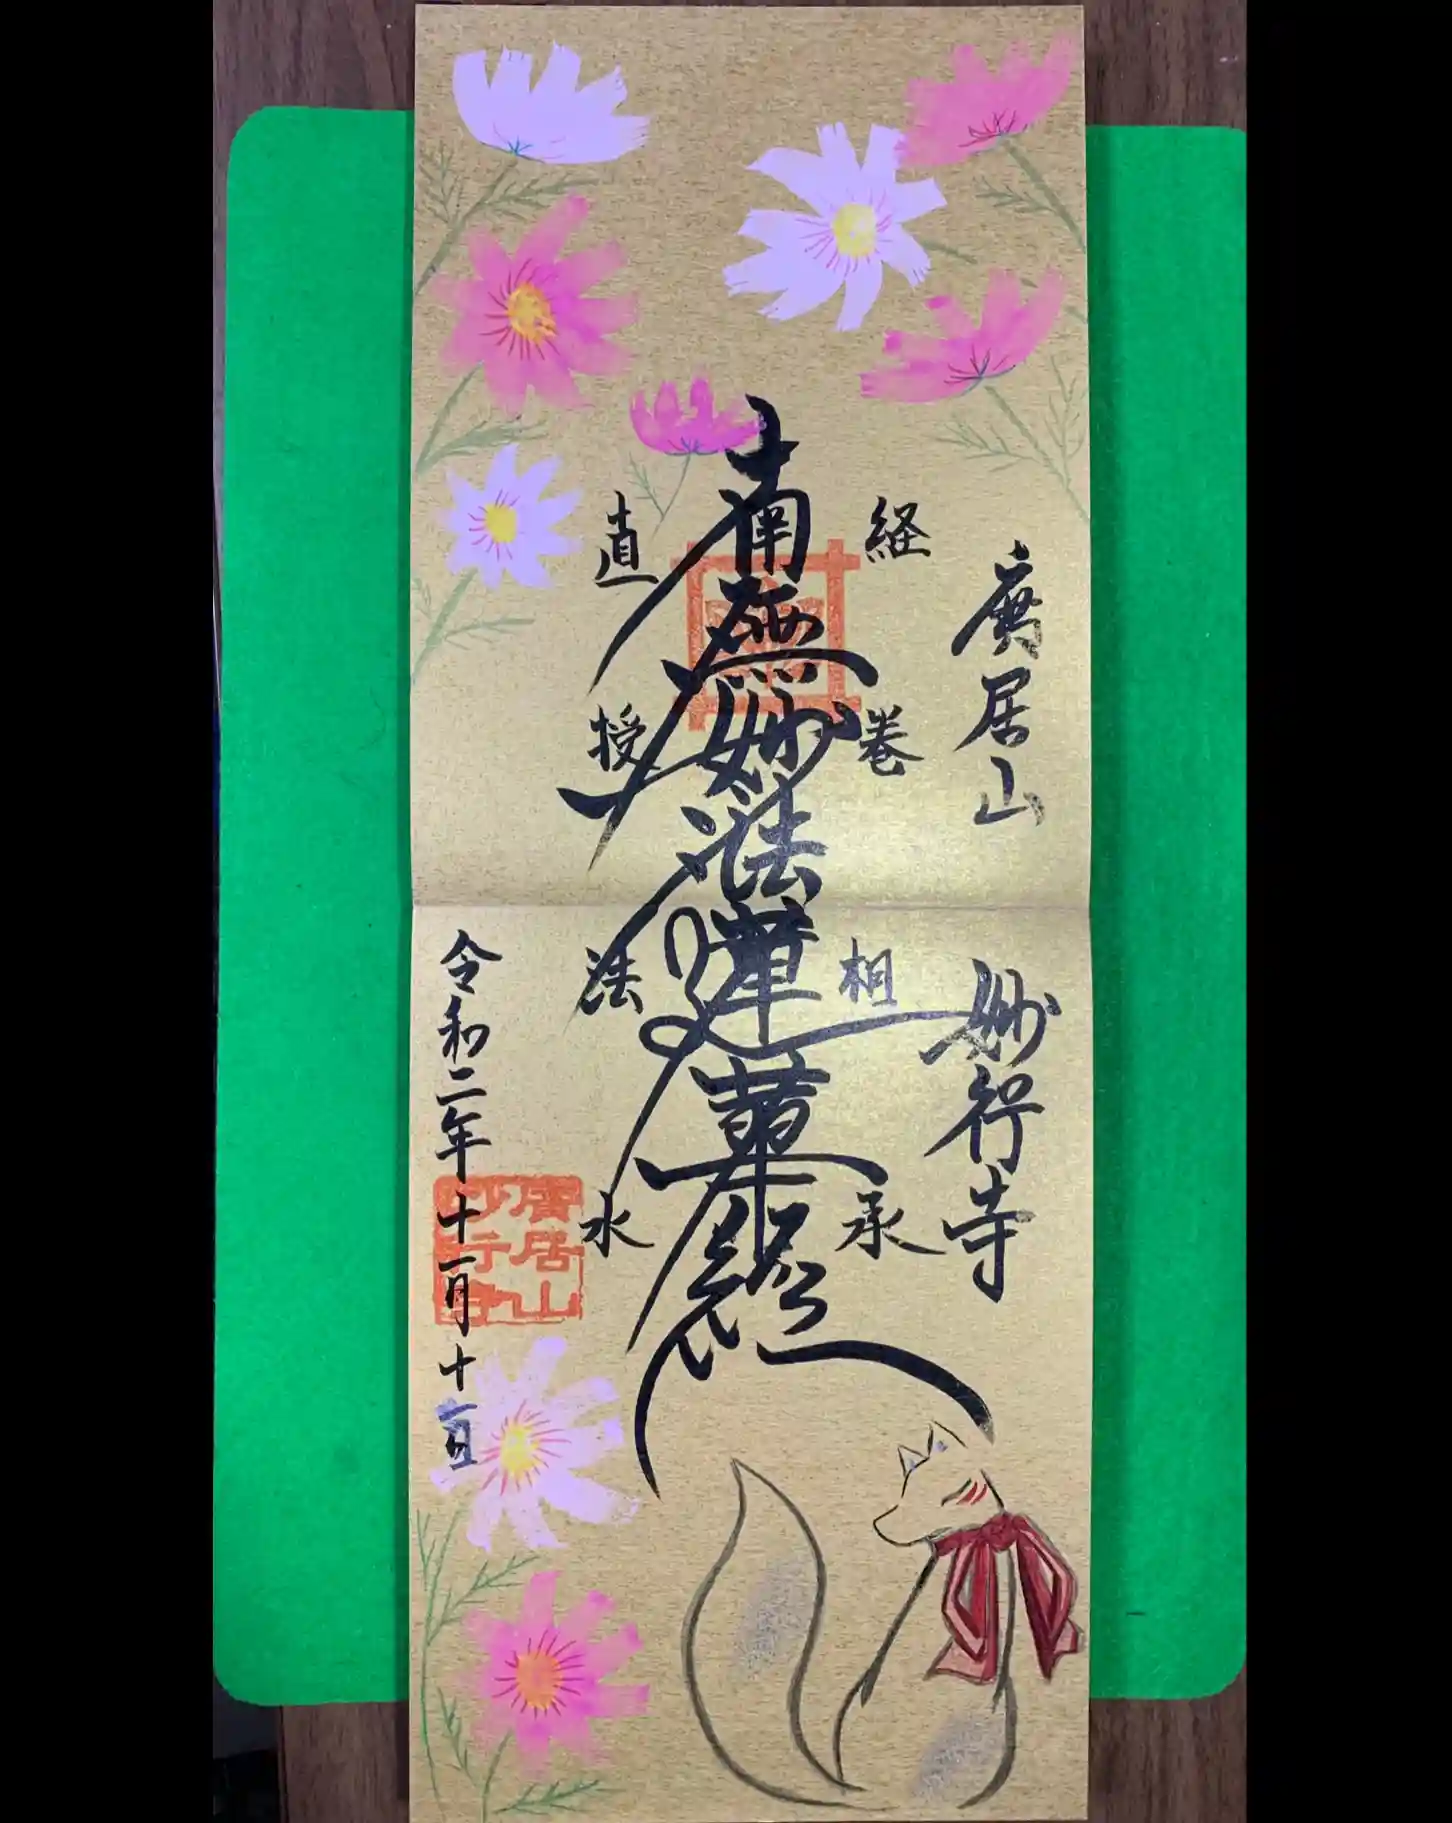 廣居山
妙行寺
経巻相承
南無妙法蓮華経
直授法水
令和二年十一月十二日
廣居山
妙行寺